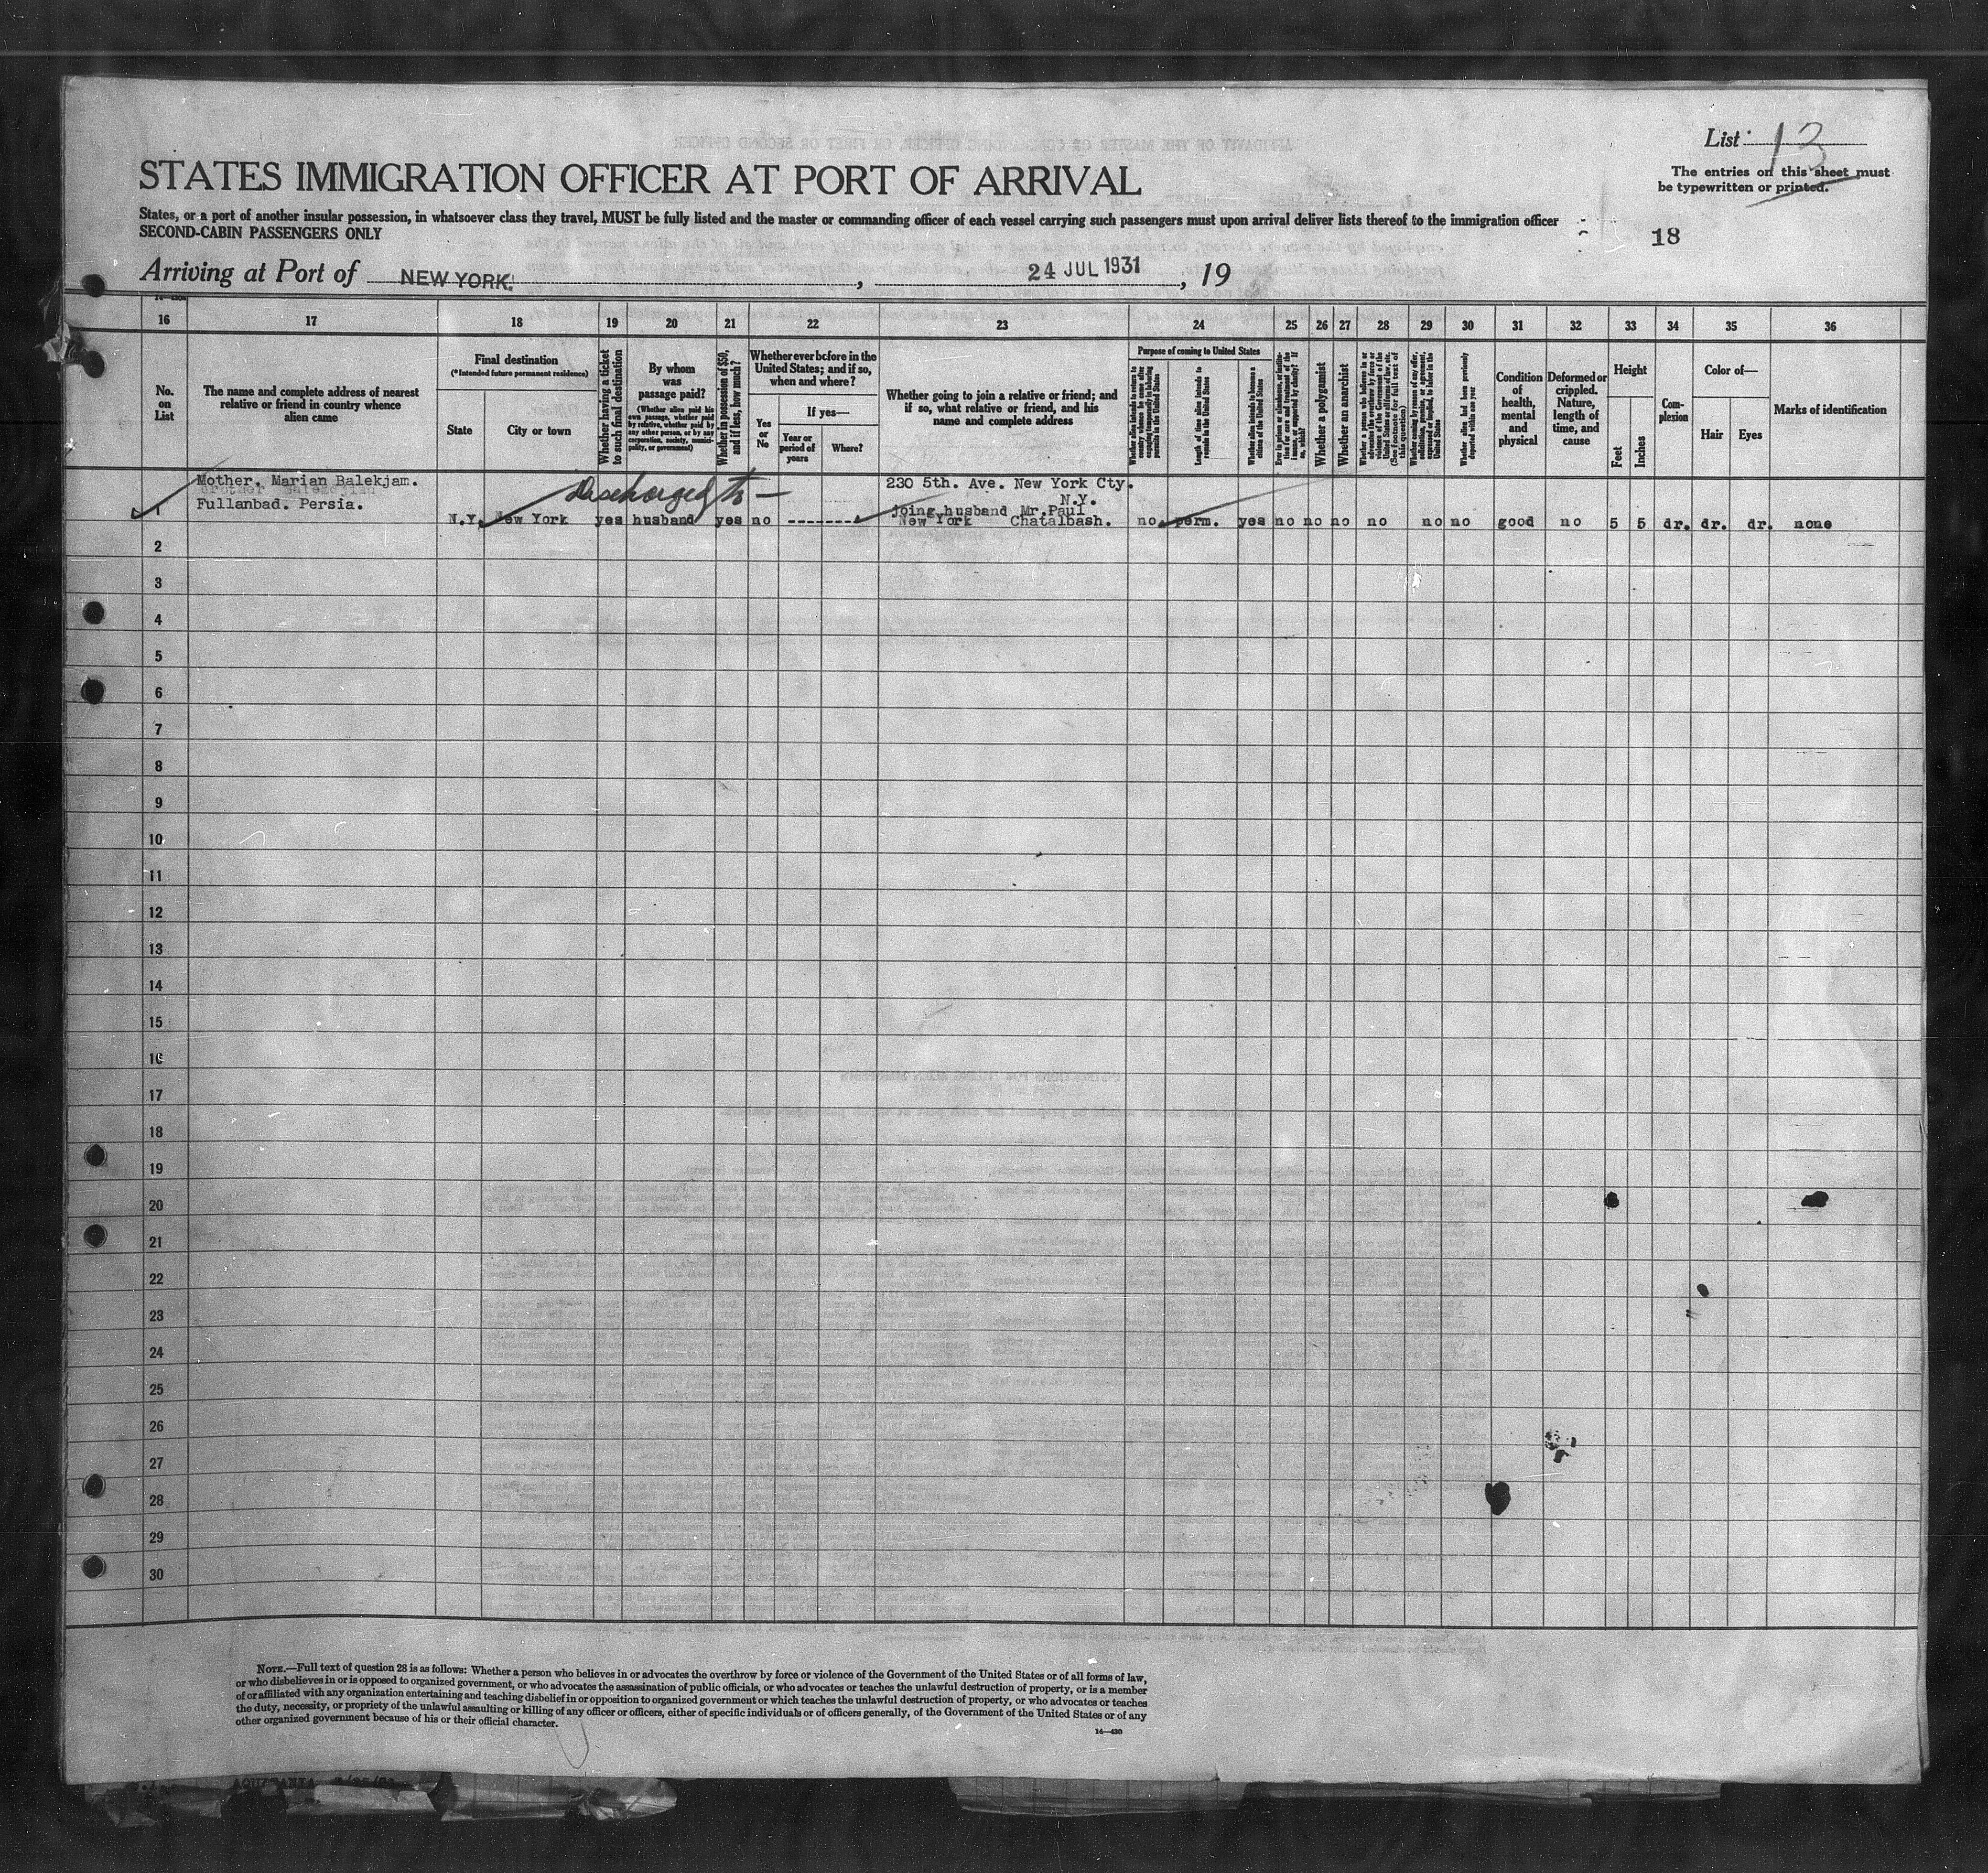 List 13
The entries on this sheet must
be typewritten or printed.
STATES IMMIGRATION OFFICER AT PORT OF ARRIVAL
States, or a port of another insular possession, in whatsoever class they travel, MUST be fully listed and the master or commanding officer of each vessel carrying such passengers must upon arrival deliver lists thereof to the immigration officer
SECOND-CABIN PASSENGERS ONLY
18
Arriving at Port of NEW YORK. , 24 JUL 1931 , 19
16 17 18 19 20 21 22 23 24 25 26 27 28 29 30 31 32 33 34 35 36
No.
on
List
The name and complete address of nearest
relative or friend in country whence
alien came
Final destination
(*Intended future permanent residence)
State
City or town
Whether having a ticket
to such final destination
By whom
was
passage paid?
(Whether alien paid his
own passage, whether paid
by relative, whether paid by
any other person, or by any
corporation, society, munici-
pality, or government)
Whether in possession of $50,
and if less, how much?
Whether ever before in the
United States; and if so,
when and where?
Yes
or
No
If yes—
Year or
period of
years
Where?
Whether going to join a relative or friend; and
if so, what relative or friend, and his
name and complete address
Purpose of coming to United States
Length of time alien intends to
remain in the United States
Whether alien intends to become a
citizen of the United States
Whether a polygamist
Whether an anarchist
Whether alien had been previously
deported within one year
Condition
of
health,
mental
and
physical
Deformed or
crippled.
Nature,
length of
time, and
cause
Height
Feet
Inches
Com-
plexion
Color of—
Hair
Eyes
Marks of identification
Mother. Marian Balekjam.
Fullanbad. Persia.
discharged to —
230 5th. Ave. New York Cty.
N.Y.
joing husband Mr.Paul
1 N.Y. New York yes husband yes no -------- New York Chatalbash. no perm. yes no no no no no no good no 5 5 dr. dr. dr. none
2
3
4
5
6
7
8
9
10
11
12
13
14
15
16
17
18
19
20
21
22
23
24
25
26
27
28
29
30
NOTE.—Full text of question 28 is as follows: Whether a person who believes in or advocates the overthrow by force or violence of the Government of the United States or of all forms of law,
or who disbelieves in or is opposed to organized government, or who advocates the assassination of public officials, or who advocates or teaches the unlawful destruction of property, or is a member
of or affiliated with any organization entertaining and teaching disbelief in or opposition to organized government or which teaches the unlawful destruction of property, or who advocates or teaches
the duty, necessity, or propriety of the unlawful assaulting or killing of any officer or officers, either of specific individuals or of officers generally, of the Government of the United States or of any
other organized government because of his or their official character.
14—430